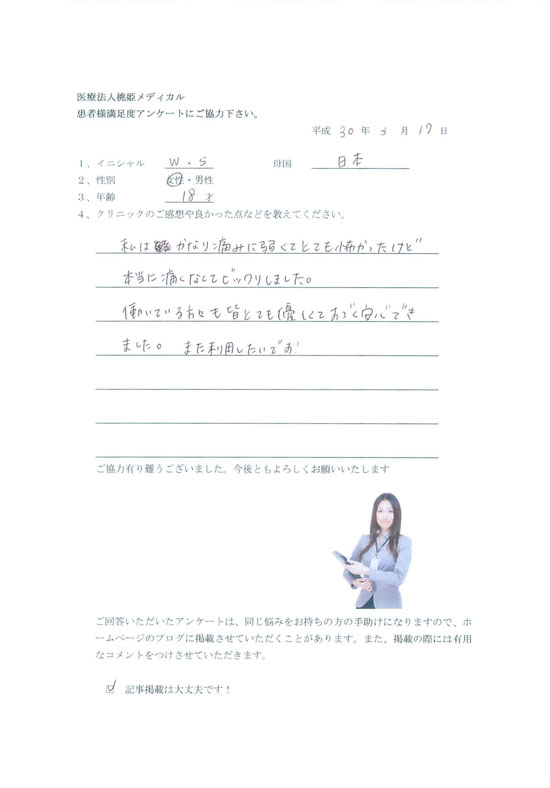 医療法人桃姫メディカル
患者様満足度アンケートにご協力下さい。
平成 30 年 3 月 17 日
1、イニシャル W・S 母国 日本
2、性別 女性・男性
3、年齢 18 才
4、クリニックのご感想や良かった点などを教えてください。
私はかなり痛みに弱くてとても怖かったけど
本当に痛くなくてビックリしました。
働いている方々も皆とても優しくてすごく安心でき
ました。 また利用したいです!
ご協力有り難うございました。今後ともよろしくお願いいたします
ご回答いただいたアンケートは、同じ悩みをお持ちの方の手助けになりますので、ホ
ームページのブログに掲載させていただくことがあります。また、掲載の際には有用
なコメントをつけさせていただきます。
記事掲載は大丈夫です!